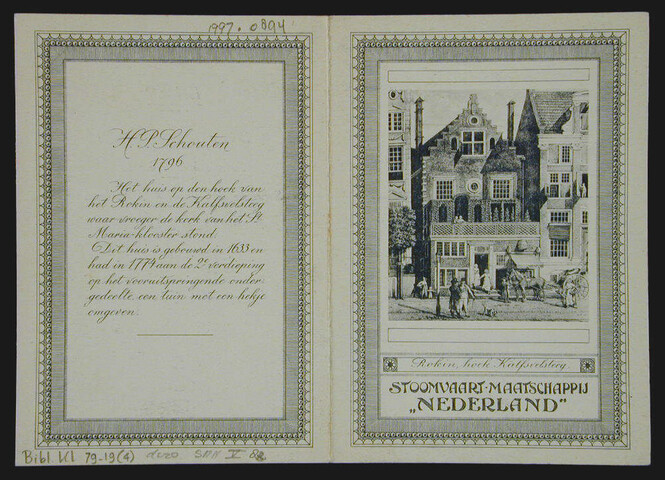 1997.0894
H.P. Schouten
1796
Het huis op den hoek van
het Rokin en de Kalfsvelsteeg
waar vroeger de kerk van het St
Maria-klooster stond.
Dit huis is gebouwd in 1633 en
had in 1774 aan de 2e verdieping
op het vooruitspringende onder-
gedeelte een tuin met een hekje
omgeven.
Rokin, hoek Kalfsvelsteeg.
STOOMVAART-MAATSCHAPPIJ
„NEDERLAND"
Bibl. Kl 79-19(4) SMN V